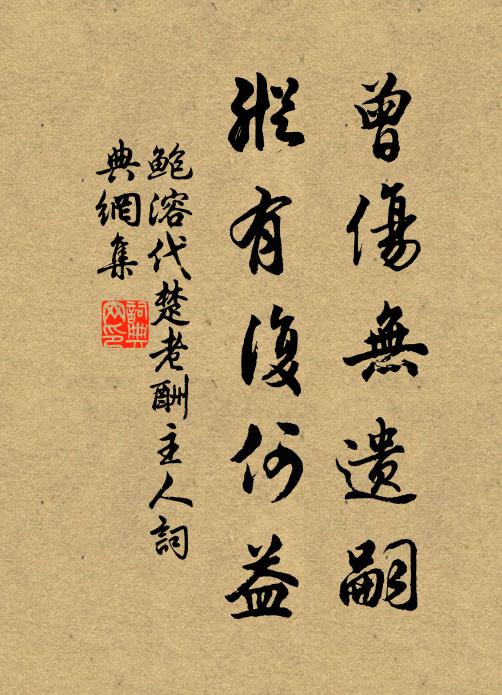 曾傷無遺嗣
縱有復何益
鮑溶代楚老酬主人詞
典網集
詞典網印